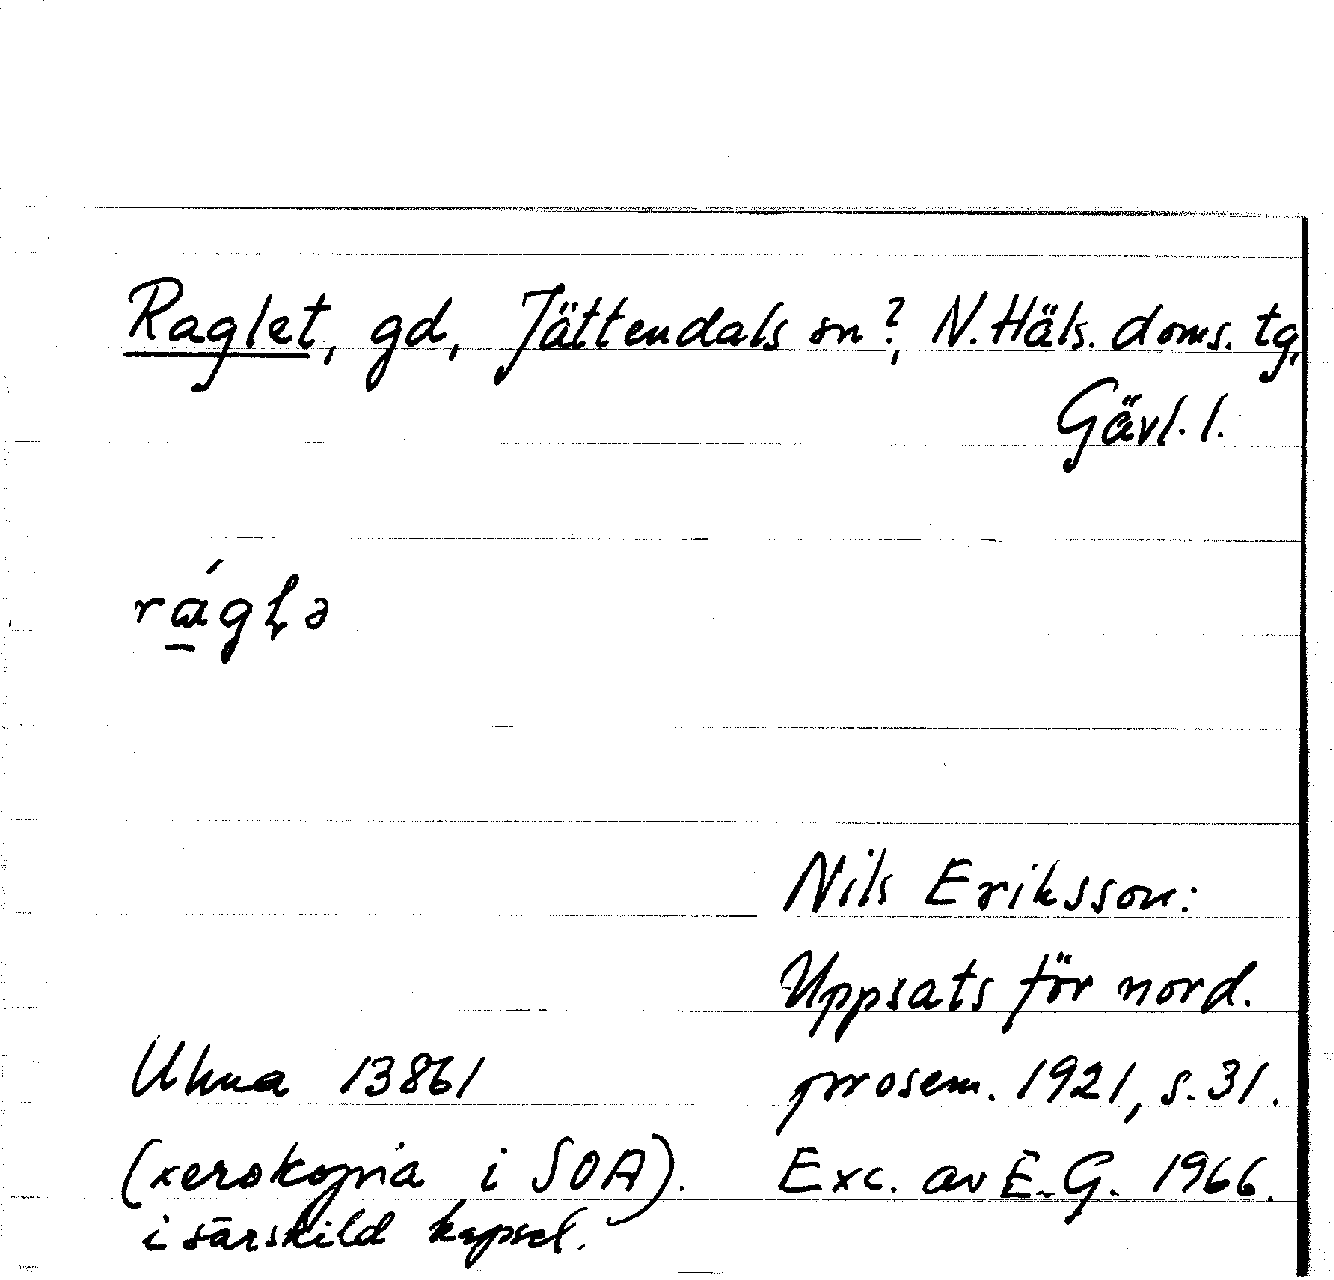 Raglet, gd, Jättendals sn?, N. Häls. doms. tg,
Gävl. l.
Nils Eriksson:
Uppsats för nord.
Uhua 13861
prosem. 1921, s. 31.
(xerokopia i SOA).
Exc. av E. G. 1966.
i särskild kapsel.